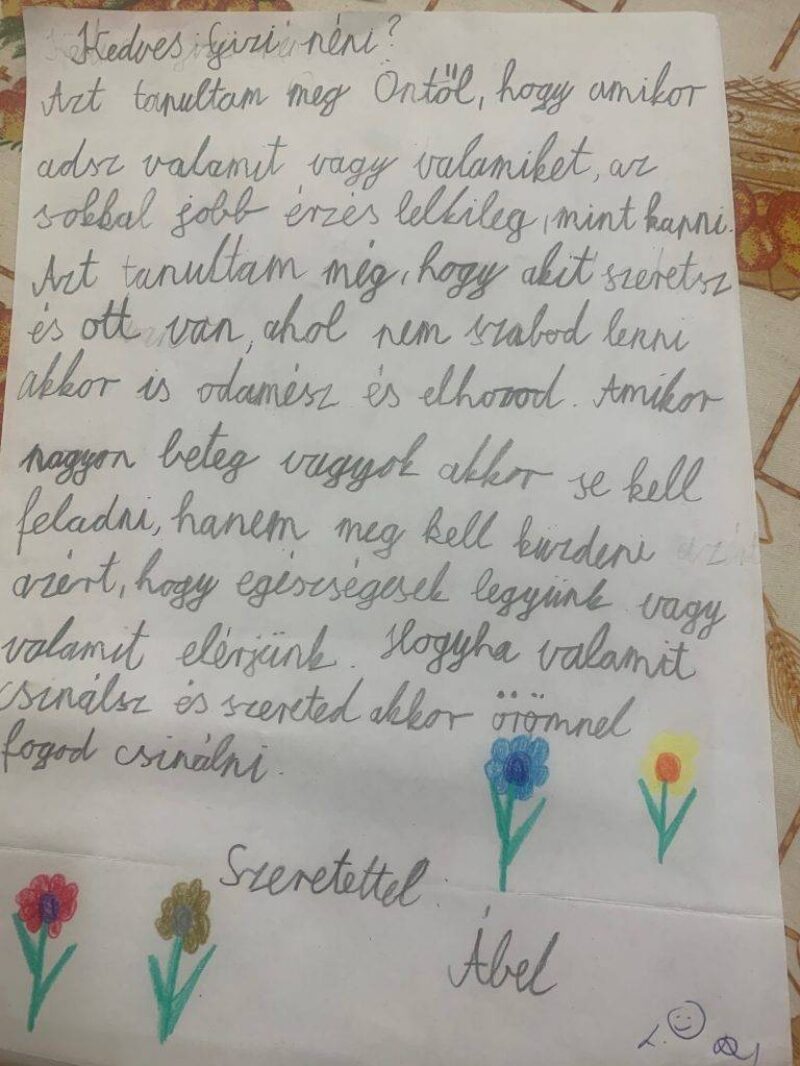 Kedves Gizi néni?
Azt tanultam meg Öntől, hogy amikor
adsz valamit vagy valamiket, az
sokkal jobb érzés lelkileg, mint kapni.
Azt tanultam még, hogy akit szeretsz
és ott van, ahol nem szabod lenni
akkor is odamész és elhozod. Amikor
nagyon beteg vagyok akkor se kell
feladni, hanem meg kell küzdeni
azért, hogy egészségesek legyünk vagy
valamit elérjünk. Hogyha valamit
csinálsz és szereted akkor örömnel
fogod csinálni.
Szeretettel:
Ábel